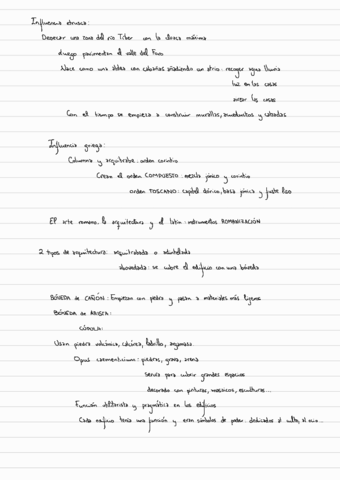 Influencia etrusca:
Desecar una zona del río Tíber con la cloaca máxima
Luego pavimentan el valle del Foro
Nace como una aldea con cabañas añadiendo un atrio: recoger agua lluvia
luz en las casas
airear las casas
Con el tiempo se empieza a construir murallas, acueductos y calzadas
Influencia griega:
Columna y arquitrabe: orden corintio
Crean el orden COMPUESTO: mezcla jónico y corintio
orden TOSCANO: capitel dórico, basa jónica y fuste liso
El arte romano, la arquitectura y el latín: instrumentos ROMANIZACIÓN
2 tipos de arquitectura: arquitrabada o adintelada
abovedada: se cubre el edificio con una bóveda
BÓVEDA de CAÑÓN: Empiezan con piedra y pasan a materiales más ligeros
BÓVEDA de ARISTA:
CÚPULA:
Usan piedra volcánica, calcárea, ladrillo, argamasa
Opus caementicium: piedras, grava, arena
Servía para cubrir grandes espacios
decorado con pinturas, mosaicos, esculturas...
Función utilitaria y pragmática en los edificios
Cada edificio tenía una función y eran símbolos de poder dedicados al culto, al ocio...